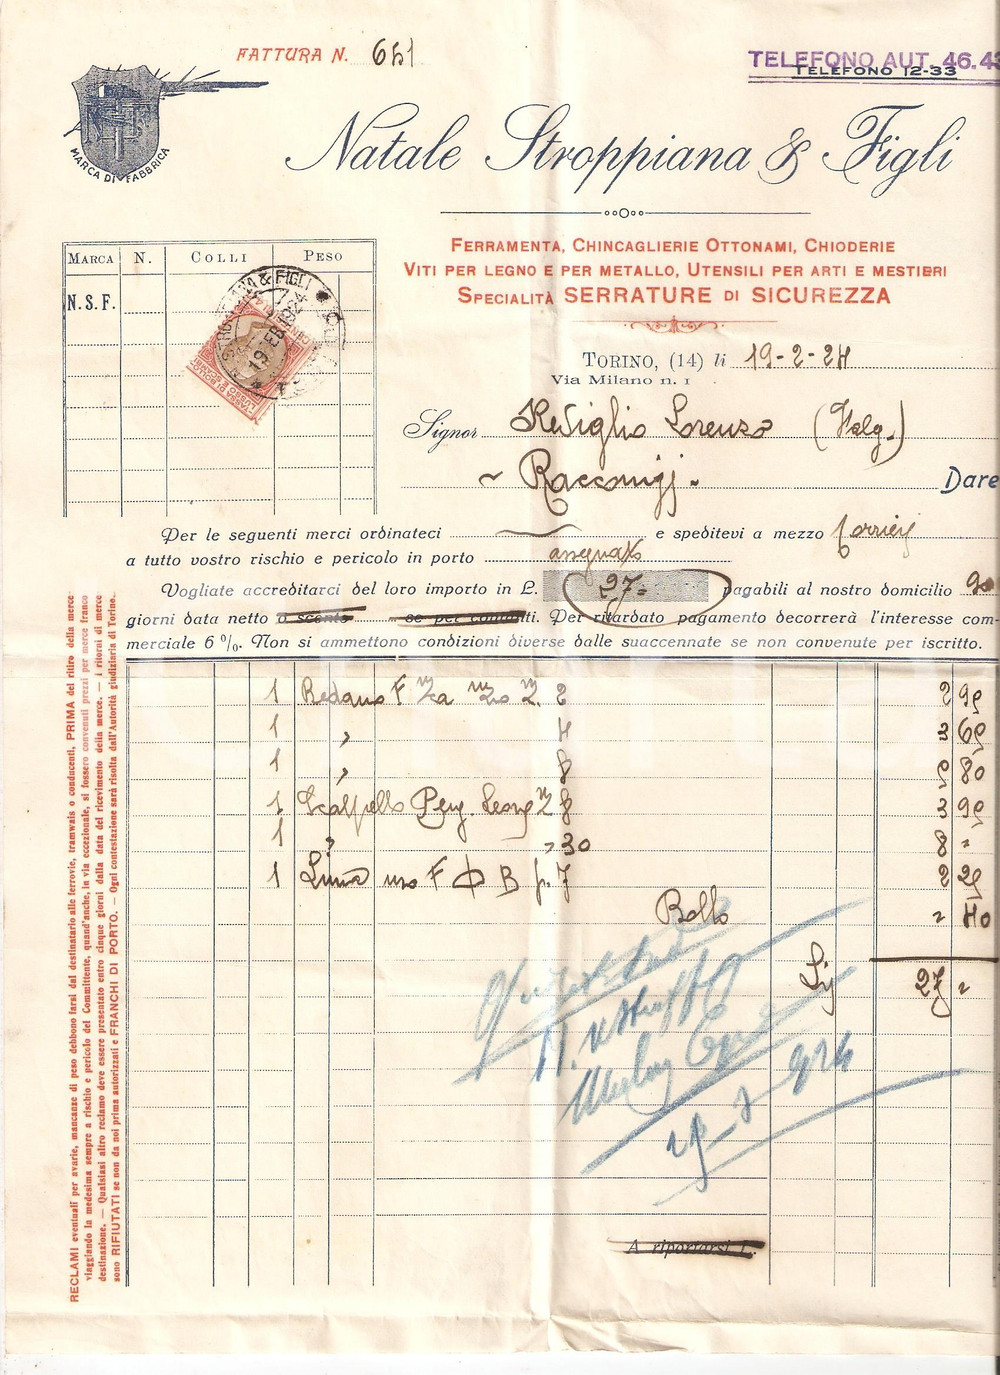 FATTURA N. 651
TELEFONO AUT. 46.43
TELEFONO 12-33
MARCA DI FABBRICA
Natale Stroppiana & Figli
FERRAMENTA, CHINCAGLIERIE OTTONAMI, CHIODERIE
VITI PER LEGNO E PER METALLO, UTENSILI PER ARTI E MESTIERI
SPECIALITÀ SERRATURE DI SICUREZZA
MARCA N. COLLI PESO
N.S.F.
& FIGLI
19 FEB
TORINO, (14) li 19-2-24
VIA MILANO N. 1
Signor Reviglio Lorenzo (Faleg.)
Racconigi
Dare
Per le seguenti merci ordinateci e speditevi a mezzo
a tutto vostro rischio e pericolo in porto assegnato
Vogliate accreditarci del loro importo in L. 27= pagabili al nostro domicilio 90
giorni data netto o sconto se per contanti. Per ritardato pagamento decorrerà l'interesse com-
merciale 6 %. Non si ammettono condizioni diverse dalle suaccennate se non convenute per iscritto.
1 2 2 95
1 " 4 3 65
1 " 8 5 80
1 Scalpello 8 3 95
1 " " 30 8 "
1 Lima F B p. 7 2 25
Bollo " 40
27 "
A riportarsi L.
RECLAMI eventuali per avarie, mancanze di peso debbono farsi dal destinatario alle ferrovie, tramwais o conducenti, PRIMA del ritiro della merce
viaggiando la medesima sempre a rischio e pericolo del Committente, quand'anche, in via eccezionale, si fossero convenuti prezzi per merce franco
destinazione. — Qualsiasi altro reclamo deve essere presentato entro cinque giorni dalla data del ricevimento della merce. — I ritorni di merce
sono RIFIUTATI se non da noi prima autorizzati e FRANCHI DI PORTO. — Ogni contestazione sarà risolta dall'Autorità giudiziaria di Torino.